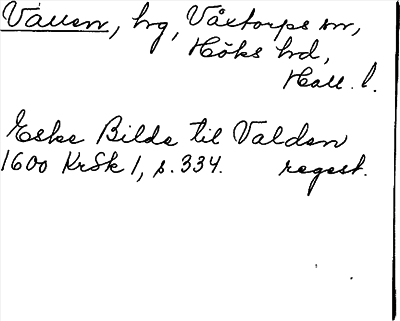 Vallen, hg, Våxtorps sn,
Höks hd,
Hall. l.
Eske Bilde til Valden
1600 KrSk 1, s. 334. regest.